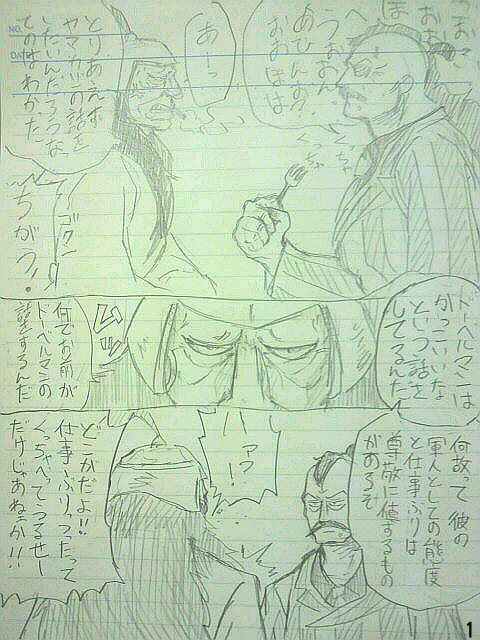 おお
ほ
へ
うぉおん
めひんのか
おおほほ
くっちゃ
くっちゃ
あーっ
とりあえず
ヤマカジの話を
したいんだろうな
てのはわかた
ゴクン
ちがう!
ドーベルマンは
かっこいいな
という話を
してるんだ!
ムッ
何でお前が
ドーベルマンの
話をするんだ
何故って彼の
軍人としての態度
と仕事ぶりは
尊敬に値するもの
があるぞ
ハァァ?!
どこがだよ!!
仕事ぶりっつたって
くっちゃべってうるせー
だけじゃあねェか!!
NO.
DATE
1